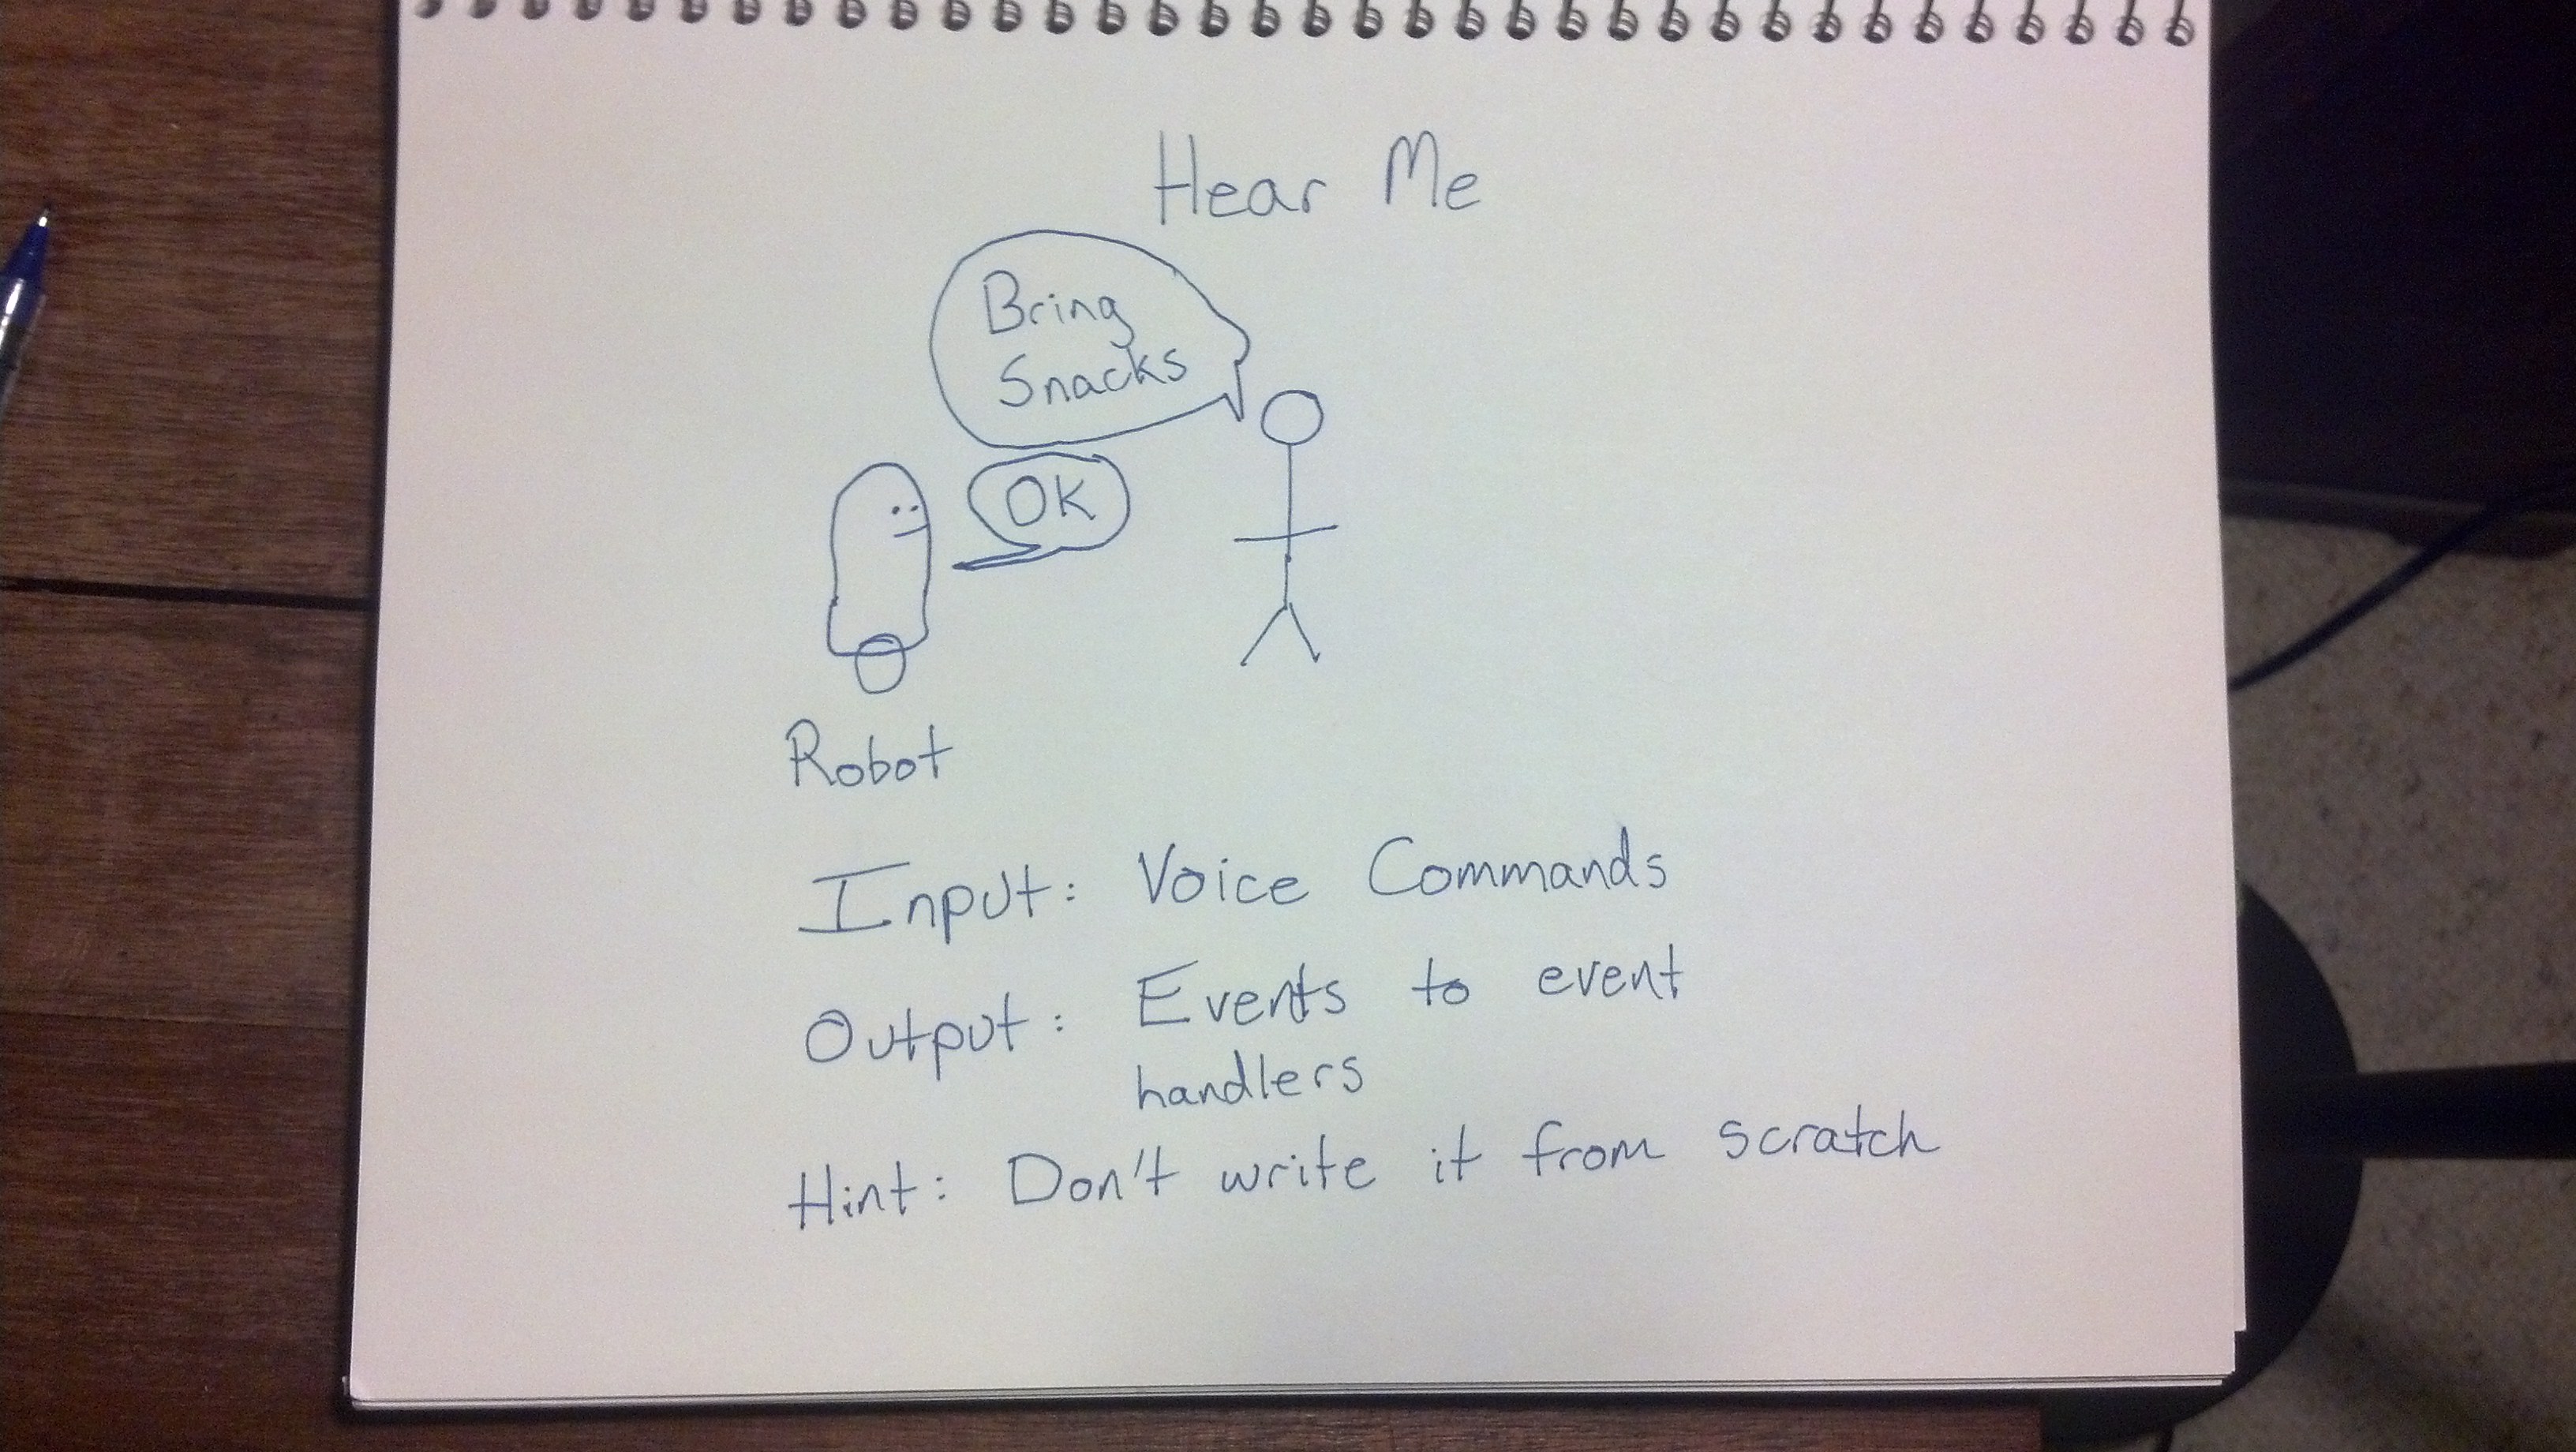 Hear Me
Bring
Snacks
OK
Robot
Input: Voice Commands
Output: Events to event
handlers
Hint: Don't write it from scratch